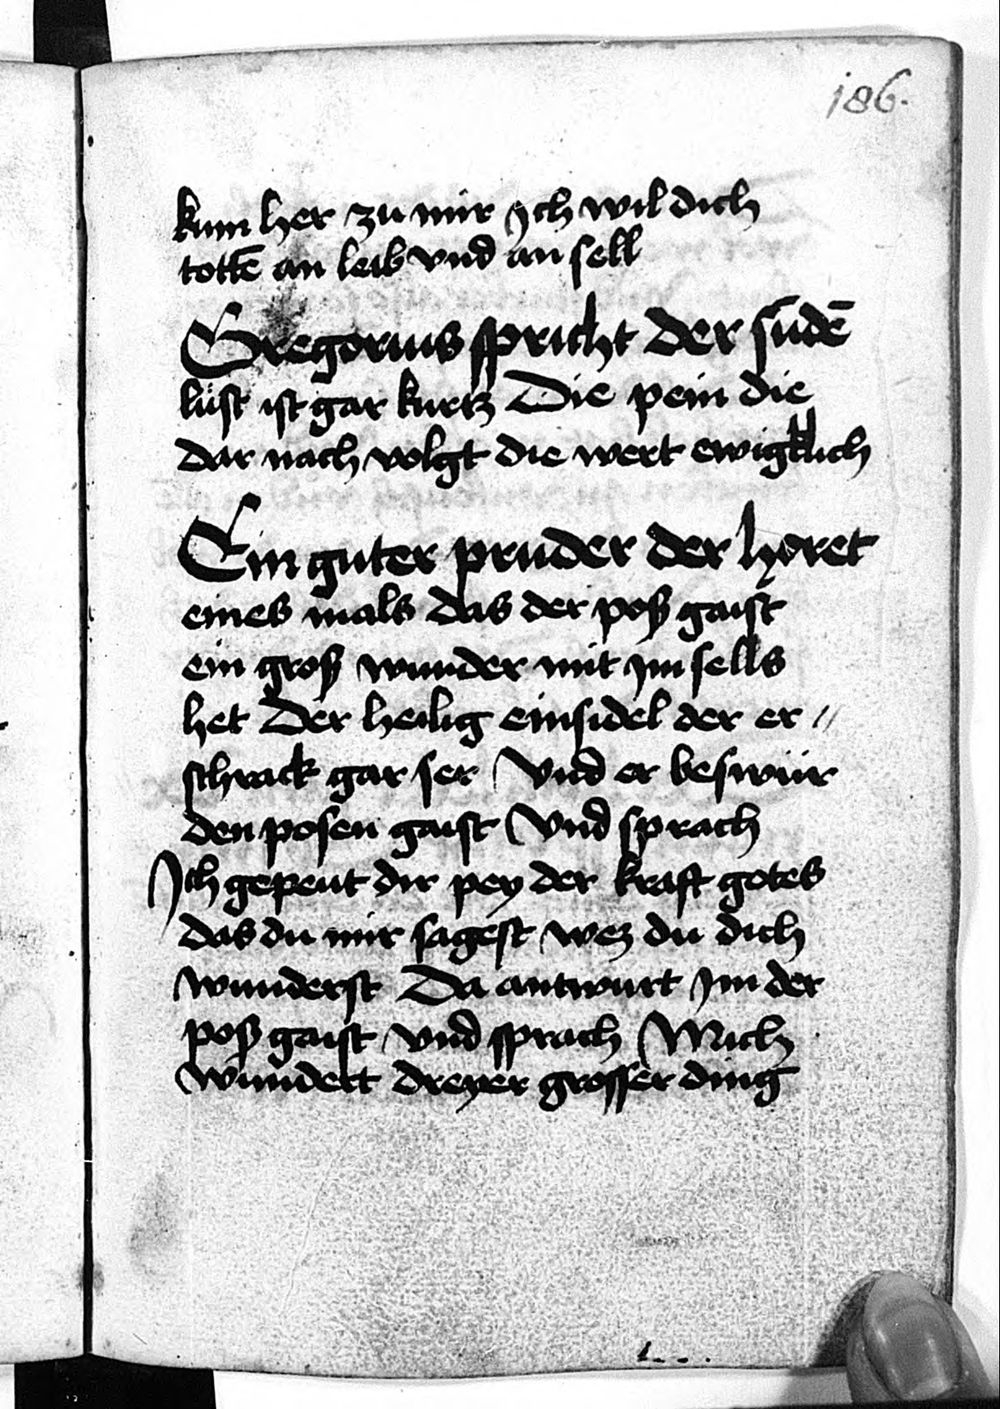 186.
kum her zu mir ych wil dich
tottē an leib vnd an sell
Gregorius spricht Der sudē
lust ist gar kurtz Die pein die
dar nach volgt die wert ewigklich
Ein guter pruder der horet
eines mals das der poß gaist
ein groß wunder mit ym sells
het Der heilig einsidel der er //
schrack gar ser Vnd er beswür
den posen gaist Vnd sprach
Ich gepeut dir pey der kraft gotes
das du mir sagest wez du dich
wunderst Da antwurt ym der
poß gaist vnd sprach Mich
wundert dreyer grosser ding